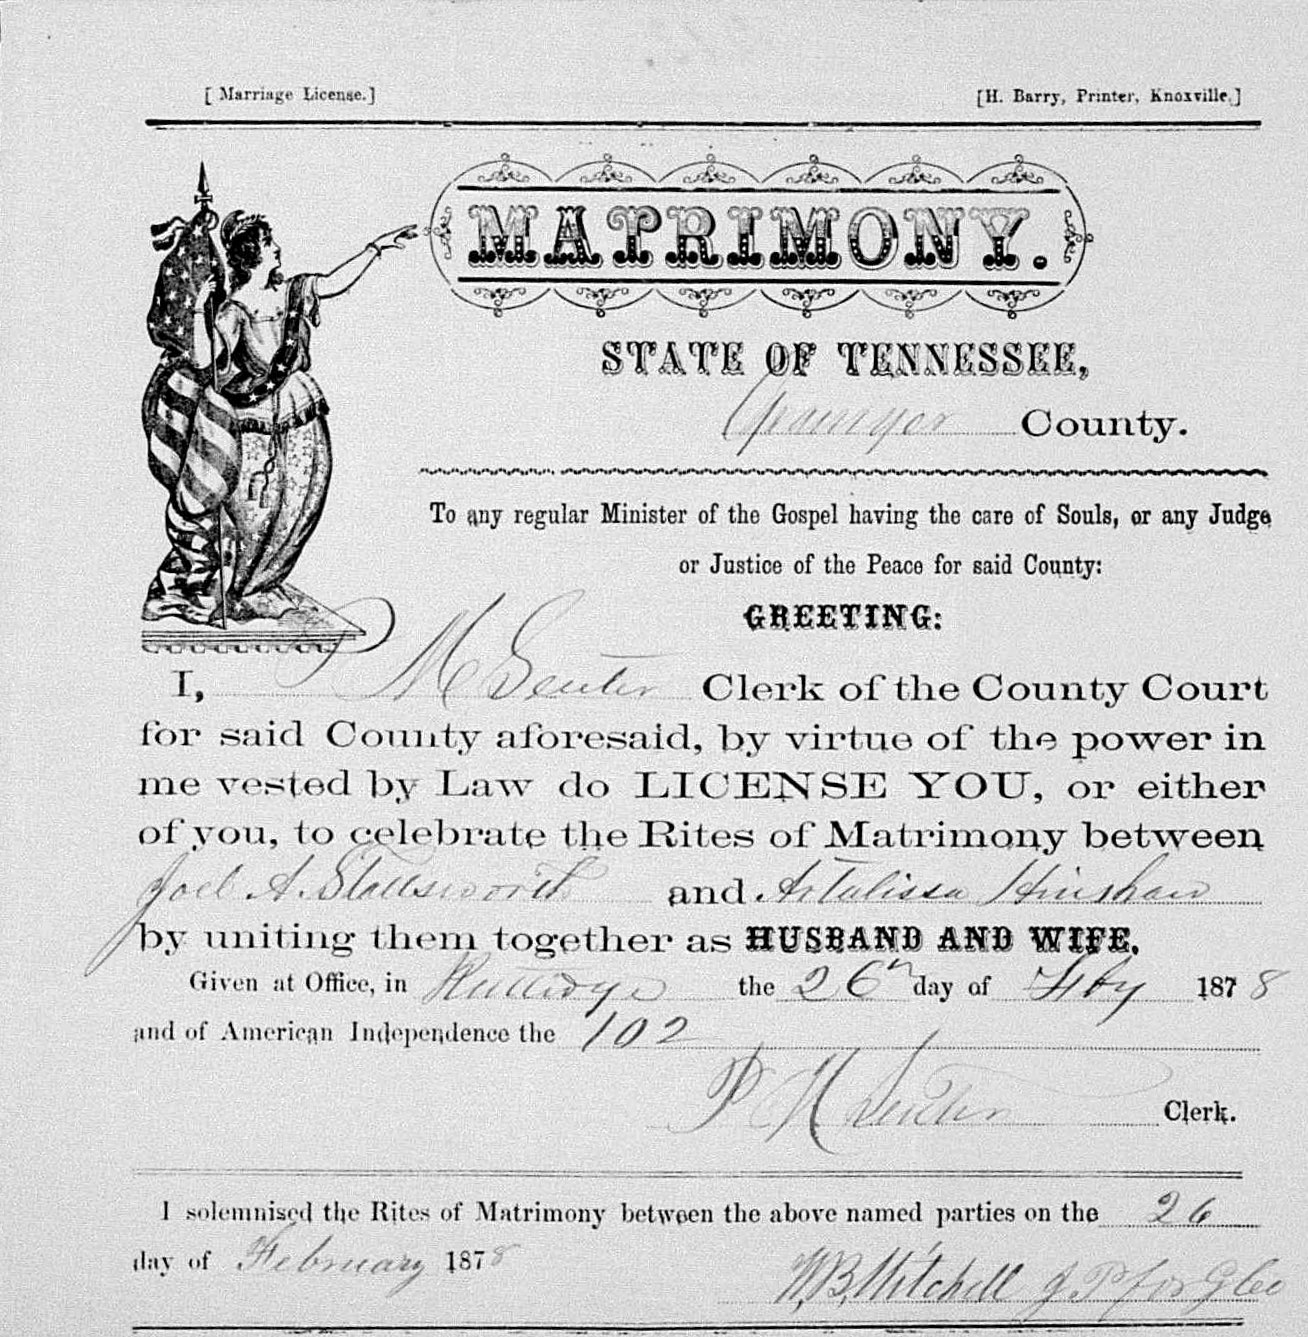 [ Marriage License. ] [H. Barry, Printer, Knoxville.]
MATRIMONY.
STATE OF TENNESSEE,
Grainger County.
To any regular Minister of the Gospel having the care of Souls, or any Judge
or Justice of the Peace for said County:
GREETING:
I, P M Senter Clerk of the County Court
for said County aforesaid, by virtue of the power in
me vested by Law do LICENSE YOU, or either
of you, to celebrate the Rites of Matrimony between
Joel A. Stallsworth and Artalissa Hinshaw
by uniting them together as HUSBAND AND WIFE.
Given at Office, in Rutledge the 26th day of Feby 1878
and of American Independence the 102
P M Senter Clerk.
I solemnised the Rites of Matrimony between the above named parties on the 26
day of February 1878
W.B. Mitchell J P for G Co